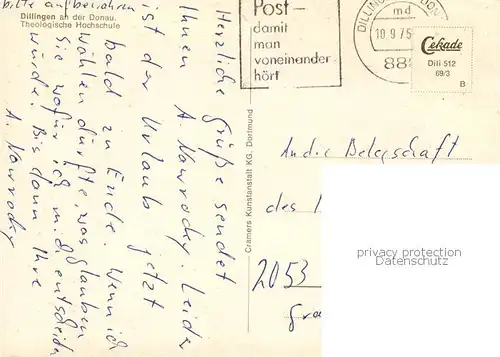 bitte aufbewahren
Dillingen an der Donau.
Theologische Hochschule
Herzliche Grüße sendet
Ihnen A. Leider
ist der Urlaub jetzt
bald zu Ende. Wenn ich
wählen dürfte, was glauben
Sie wofür ich m. d. entscheiden
würde. Bis dann Ihre
A.
Cramers Kunstanstalt KG. Dortmund
Post –
damit
man
voneinander
hört
DILLINGEN
md
10.9.75
88
Cekade
Dili 512
69/3
B
An die Belegschaft
des
privacy protection
Datenschutz
2053